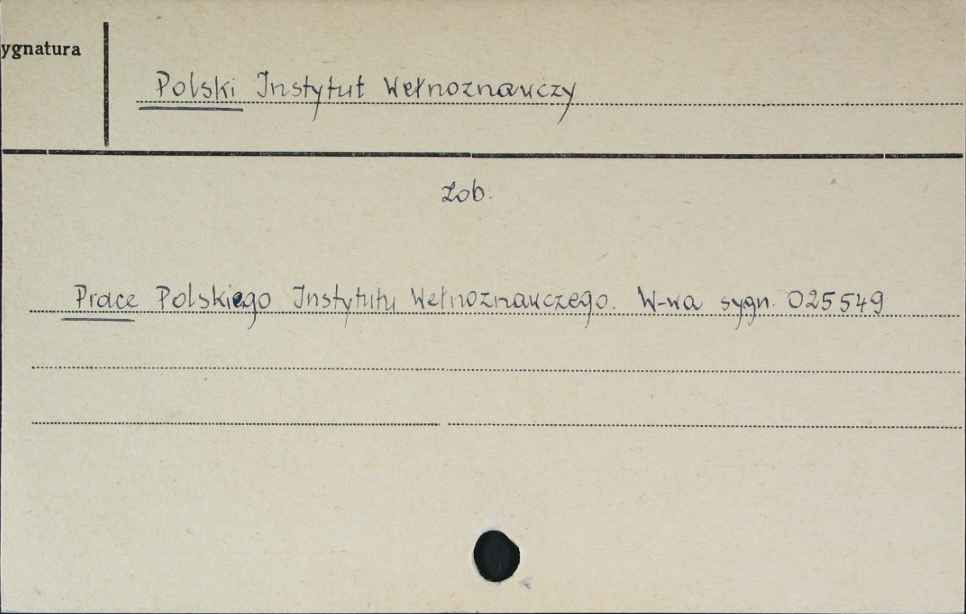 ygnatura
Polski Instytut Wełnoznawczy
Zob.
Prace Polskiego Instytutu Wełnoznawczego. W-wa sygn. 025549